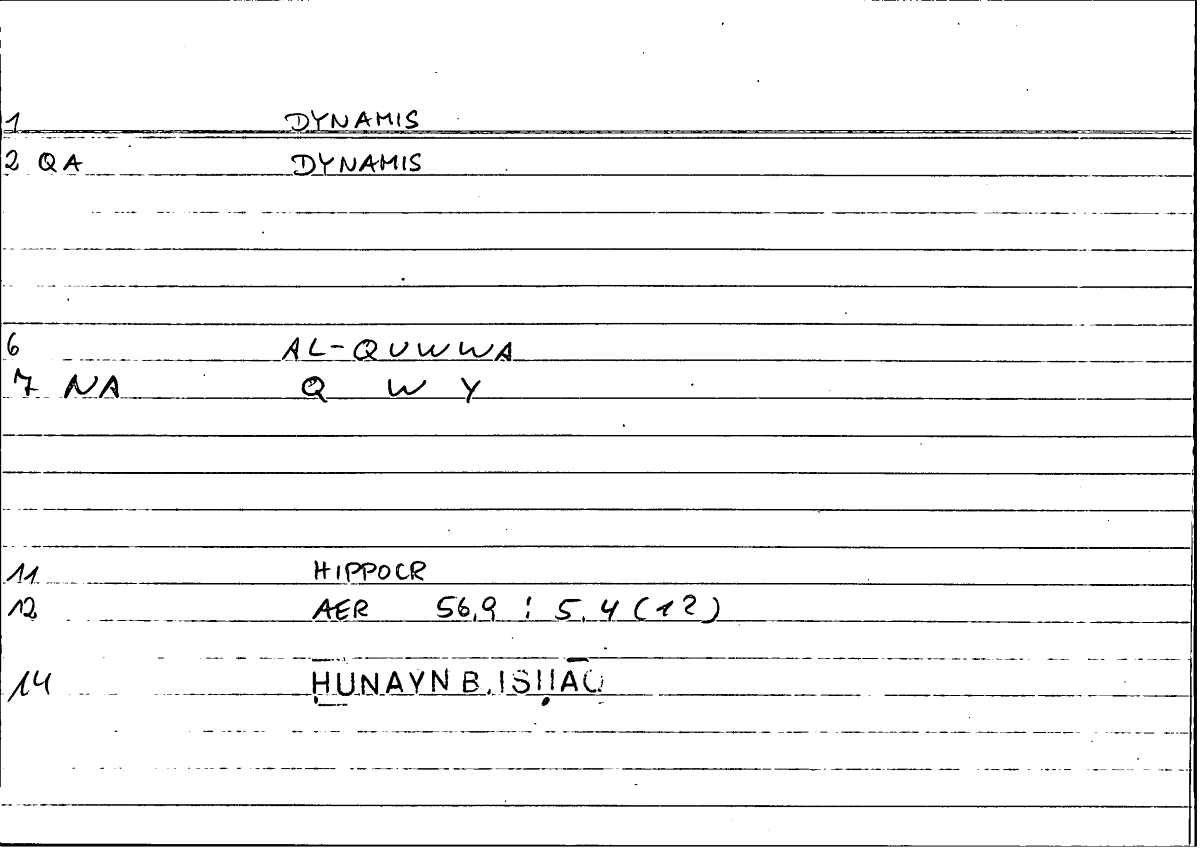 1 DYNAMIS
2 QA DYNAMIS
6 AL-QUWWA
7 NA Q W Y
11 HIPPOCR
12 AER 56,9 : 5,4 (12)
14 ḤUNAYN B. ISḤĀQ